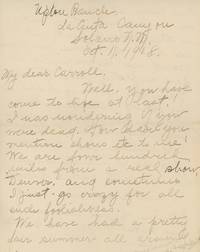 Uplore Ranch.
La Cinta Canyon
Solano N.M.
Oct. 11, 1918.
My dear Carroll.
Well. You have
come to life at last!
I was wondering if you
were dead. How dare you
mention shows etc to me!
We are four hundred
miles from a real show,
Denver, and sometimes
I just go crazy for all
such foolishness.
We have had a pretty
fair summer all around